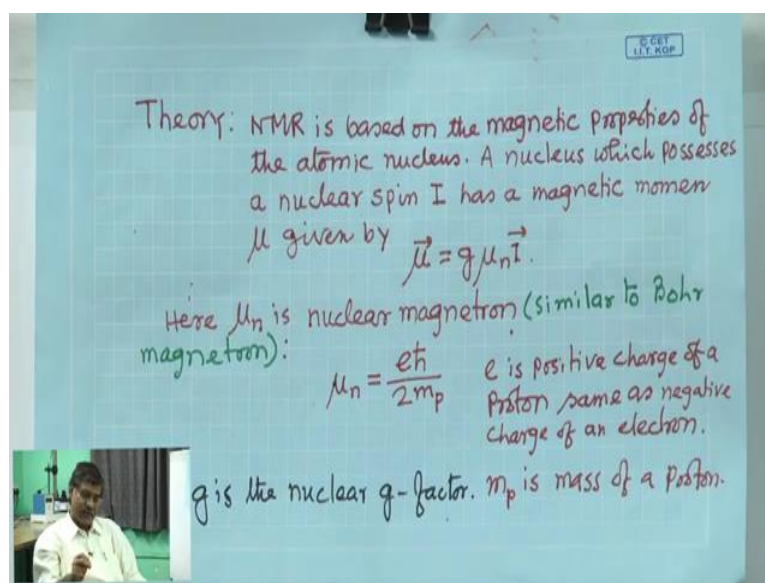 © CET
I.I.T. KGP
Theory: NMR is based on the magnetic properties of
the atomic nucleus. A nucleus which possesses
a nuclear spin I has a magnetic momen
μ given by μ⃗ = g μₙ I⃗.
Here μₙ is nuclear magnetron (similar to Bohr
magnetron):
μₙ = eħ / 2mₚ
e is positive charge of a
proton same as negative
charge of an electron.
g is the nuclear g-factor. mₚ is mass of a proton.